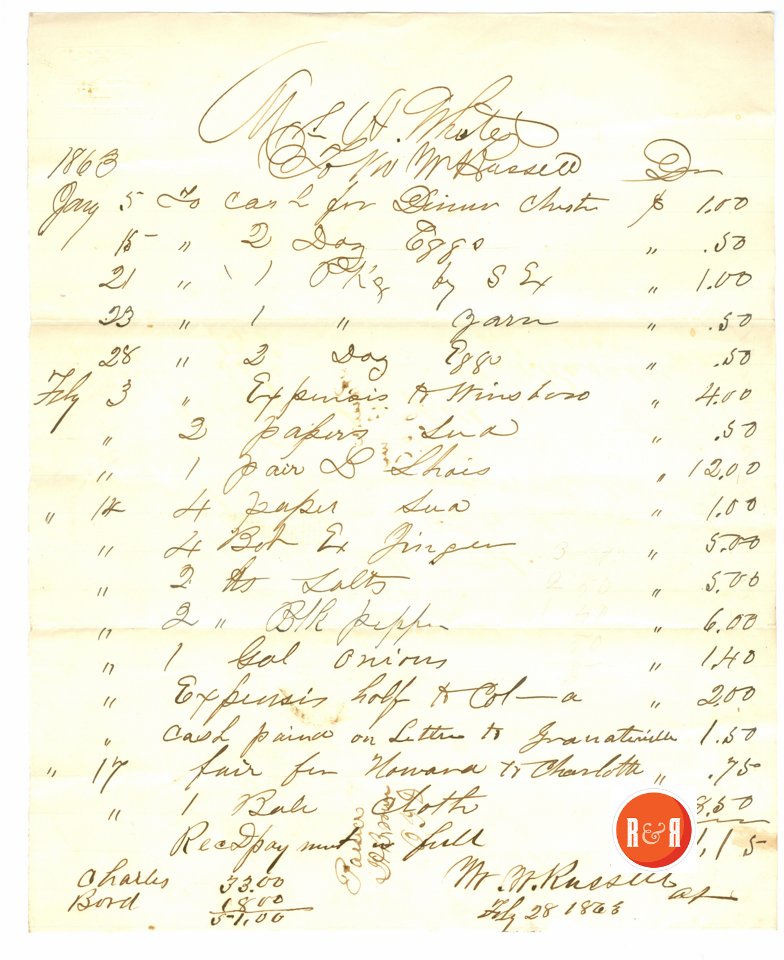 Mrs H. White
1863 To W W Russell Dr
Jany 5 To cash for Dinner Chester $ 1.00
15 " 2 Doz Eggs " .50
21 " 1 P'k'g by S Ex " 1.00
23 " 1 " yarn " .50
28 " 2 Doz Eggs " .50
Feby 3 " Expensis to Winsboro " 4.00
" 2 papers Sua " .50
" 1 pair L Shois " 12.00
" 14 4 paper Sua " 1.00
" 4 Bot Ex Jinger " 5.00
" 2 lbs Salts " 5.00
" 2 " Blk pepper " 6.00
" 1 Gal onions " 1.40
" Expensis half to Col—a " 2.00
" cash paind on Letter to Granateville 1.50
" 17 fair for Howard to Charlotte " .75
" 1 Bale Cloth 8.50
Recd pay ment in full 1,15
Charles 33.00
Bord 18.00
51.00
W. W. Russell
Feby 28 1863
R&R